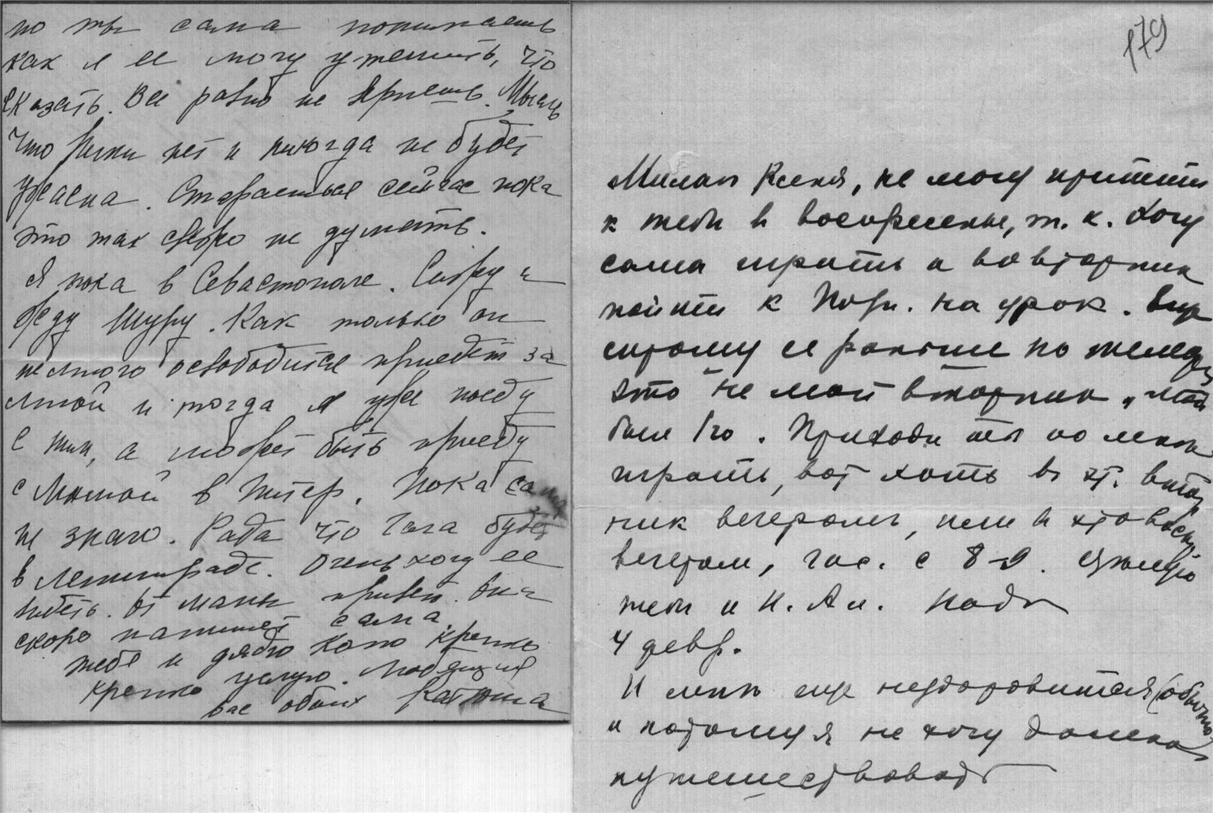 но ты сама понимаешь
как я ее могу утешить, что
сказать. Все равно не вернешь. Мысль
что Нины нет и никогда не будет
ужасна. Стараешься сейчас пока
это так остро не думать.
Я пока в Севастополе. Сижу и
жду Шуру. Как только он
немного освободится приедет за
мной и тогда я уже поеду
с ним, а может быть приеду
с мамой в Питер. Пока сама
не знаю. Рада что Тата будет
в Ленинграде. Очень хочу ее
видеть. От мамы привет. Она
скоро напишет сама.
Тебя и дядю Колю крепко
крепко целую. Любящая
вас обоих Катюша
179
Милая Ксеня, не могу притти
к тебе в воскресенье, т. к. хочу
сама играть а во вторник
пойти к на урок.
ее раньше по
это "не мой вторник",
был 1го. Приходи ты ко мне
играть, вот хоть в эт. втор
ник вечером, или в
вечером, час. с 8-9. Целую
тебя и Н. Ал. Надя
4 февр.
И мне еще нездоровится (обычно
и потому я не хочу далеко
путешествовать